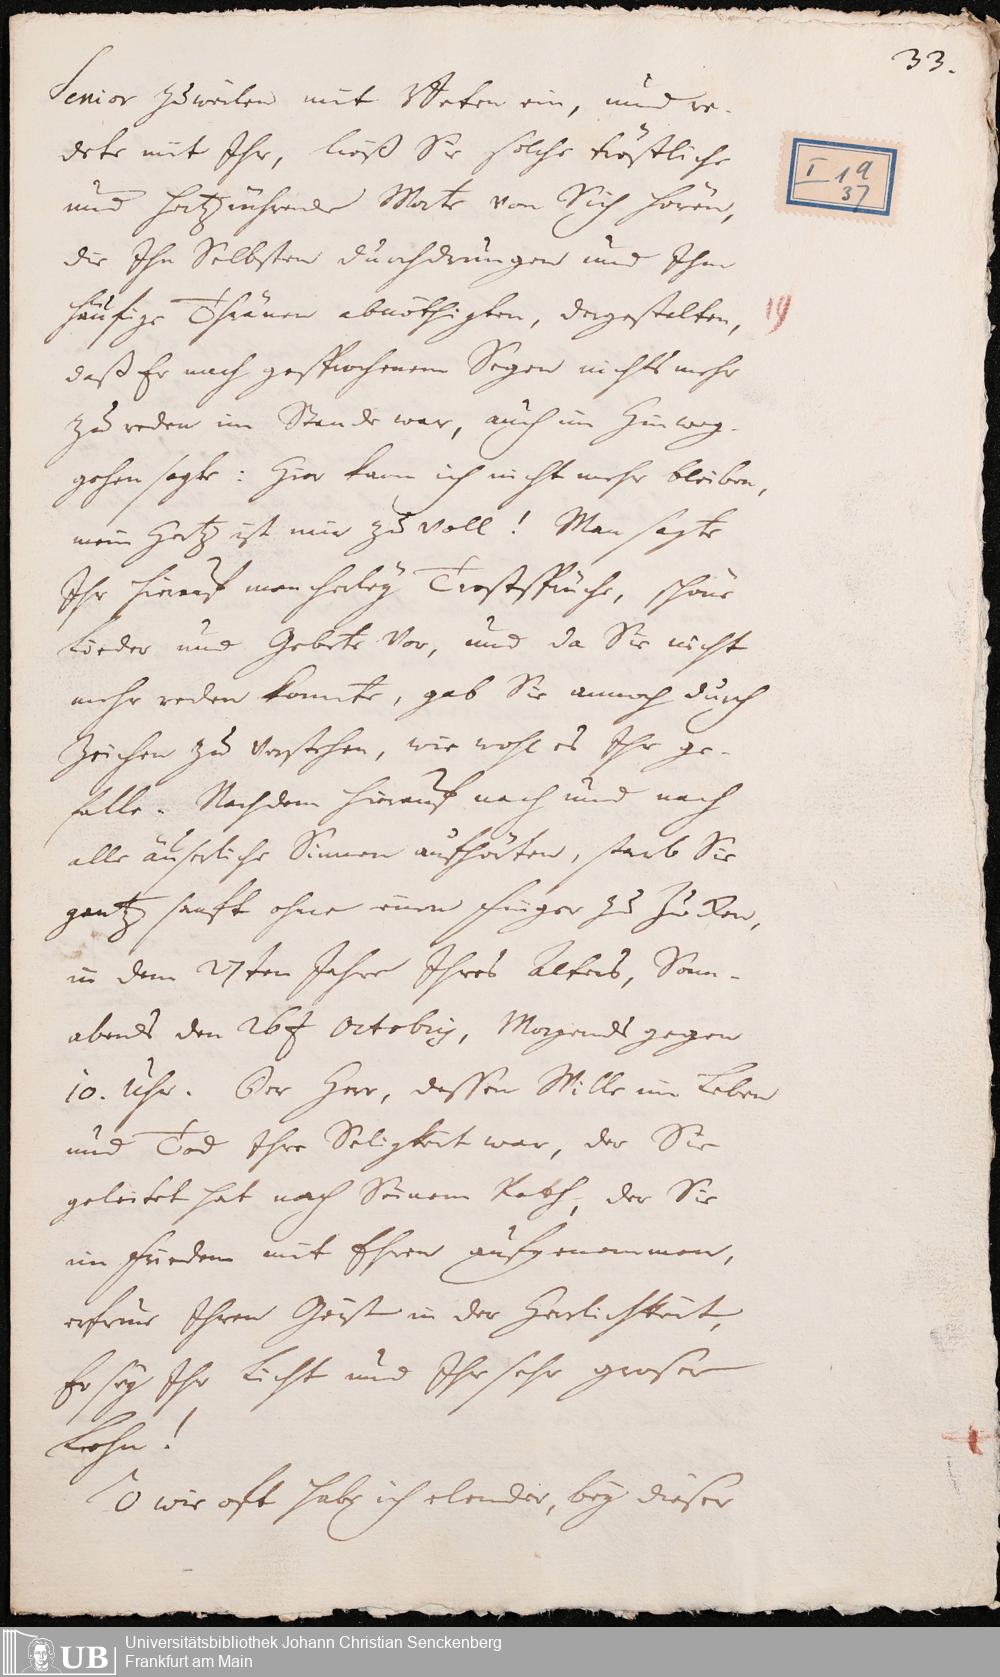 33.
Senior zuweilen mit Beten ein, und re-
dete mit Ihr, ließ Sie solche tröstliche
und hertzrührende Worte von Sich hören,
die Ihn Selbsten durchdrungen und Ihm
häufige Thränen abnöthigten, dergestalten,
daß Er nach gesprochenem Segen nichts mehr
zu reden im Stande war, auch im Hinweg-
gehen sagte: Hier kann ich nicht mehr bleiben,
mein Hertz ist mir zu voll! Man sagte
Ihr hierauf mancherley Trostsprüche, schöne
Lieder und Gebete vor, und da Sie nicht
mehr reden konnte, gab Sie annoch durch
Zeichen zu verstehen, wie wohl es Ihr ge-
falle. Nachdem hierauf nach und nach
alle äuserliche Sinnen aufhörten, starb Sie
gantz sanft ohne einen Finger zu zucken,
in dem 27ten Jahre Ihres Alters, Sonn-
abends den 26t Octobris, Morgends gegen
10. Uhr. Der Herr, dessen Wille im Leben
und Tod Ihre Seligkeit war, der Sie
geleitet hat nach Seinem Rath, der Sie
im Frieden mit Ehren aufgenommen,
erfreue Ihren Geist in der Herrlichkeit,
Er sey Ihr Licht und Ihr sehr groser
Lohn!
O wie oft habe ich elender, bey dieser
I 19
37
19
UB
Universitätsbibliothek Johann Christian Senckenberg
Frankfurt am Main